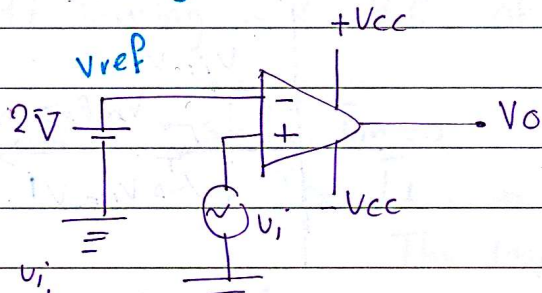 +Vcc
Vref
2V
-
+
Vo
-Vcc
vi
vi